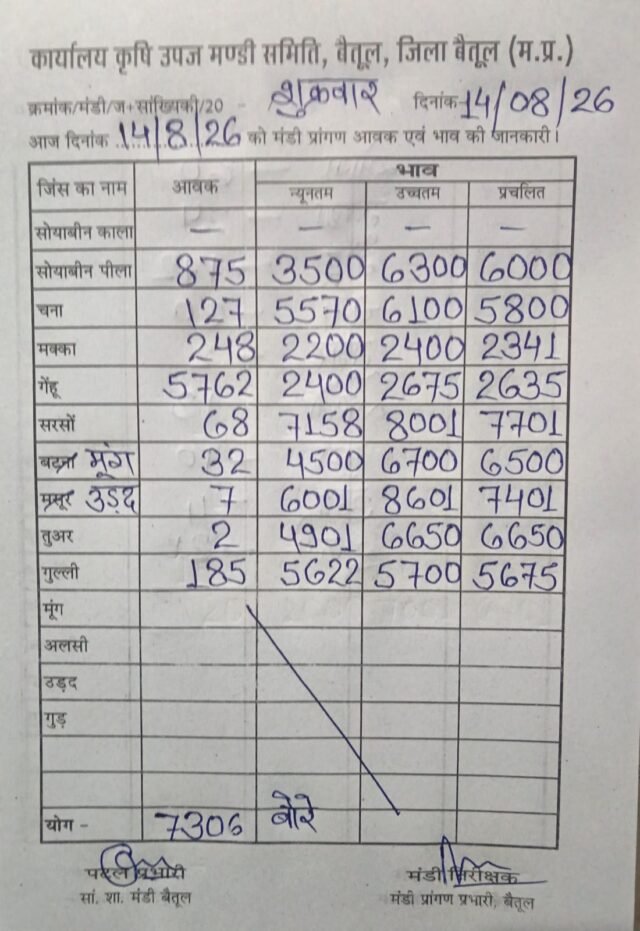 कार्यालय कृषि उपज मण्डी समिति, बैतूल, जिला बैतूल (म.प्र.)
क्रमांक/मंडी/ज+सांख्यिकी/20 - शुक्रवार दिनांक 14/08/26
आज दिनांक 14/8/26 को मंडी प्रांगण आवक एवं भाव की जानकारी।
जिंस का नाम आवक भाव
न्यूनतम उच्चतम प्रचलित
सोयाबीन काला — — — —
सोयाबीन पीला 875 3500 6300 6000
चना 127 5570 6100 5800
मक्का 248 2200 2400 2341
गेंहू 5762 2400 2675 2635
सरसों 68 7158 8001 7701
मूंग 32 4500 6700 6500
मसूर उड़द 7 6001 8601 7401
तुअर 2 4901 6650 6650
गुल्ली 185 5622 5700 5675
मूंग
अलसी
उड़द
गुड़
योग - 7306 बोरे
प्रभारी मंडी निरीक्षक
सां. शा. मंडी बैतूल मंडी प्रांगण प्रभारी, बैतूल